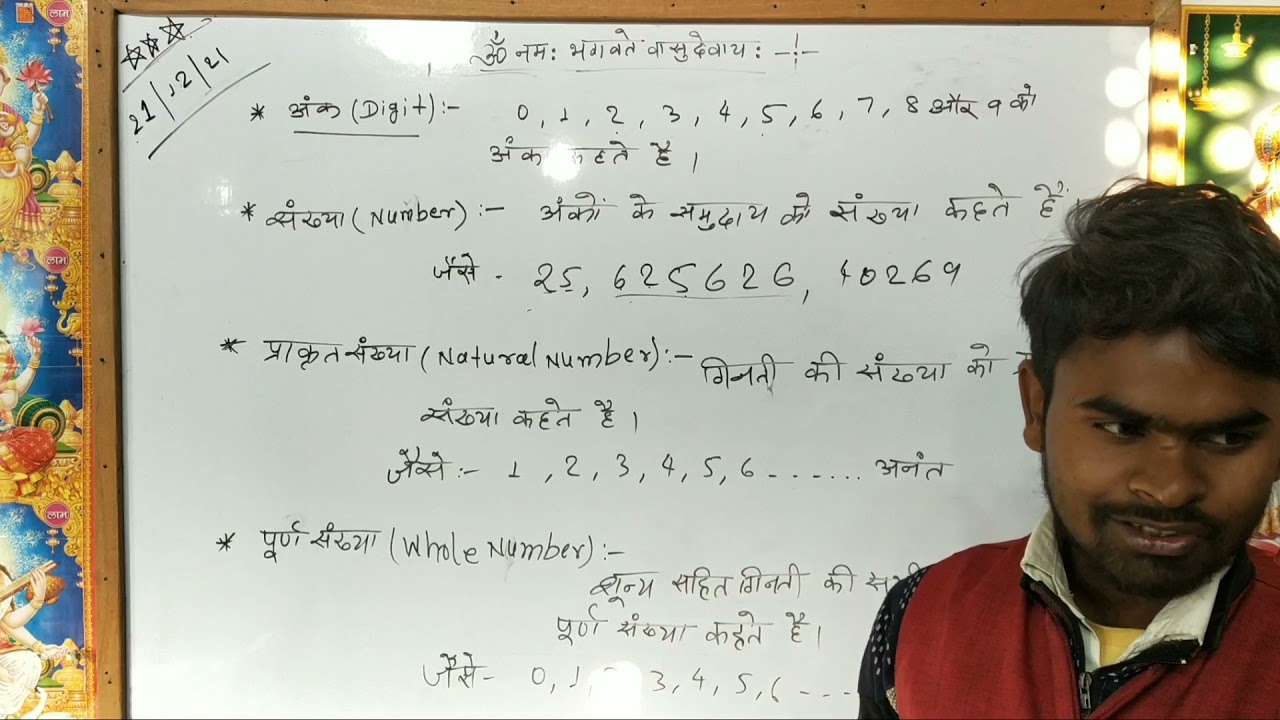 ॐ नमः भगवते वासुदेवायः
21/12/21
* अंक (Digit):- 0, 1, 2, 3, 4, 5, 6, 7, 8 और 9 को
अंक कहते है।
* संख्या (Number):- अंकों के समुदाय को संख्या कहते हैं।
जैसे - 25, 625626, 40269
* प्राकृत संख्या (Natural Number):- गिनती की संख्या को
संख्या कहते है।
जैसे:- 1, 2, 3, 4, 5, 6 - - ..... अनंत
* पूर्ण संख्या (Whole Number):-
शून्य सहित गिनती की
पूर्ण संख्या कहते है।
जैसे- 0, 1, 3, 4, 5, 6 - - ..
लाभ
लाभ
लाभ